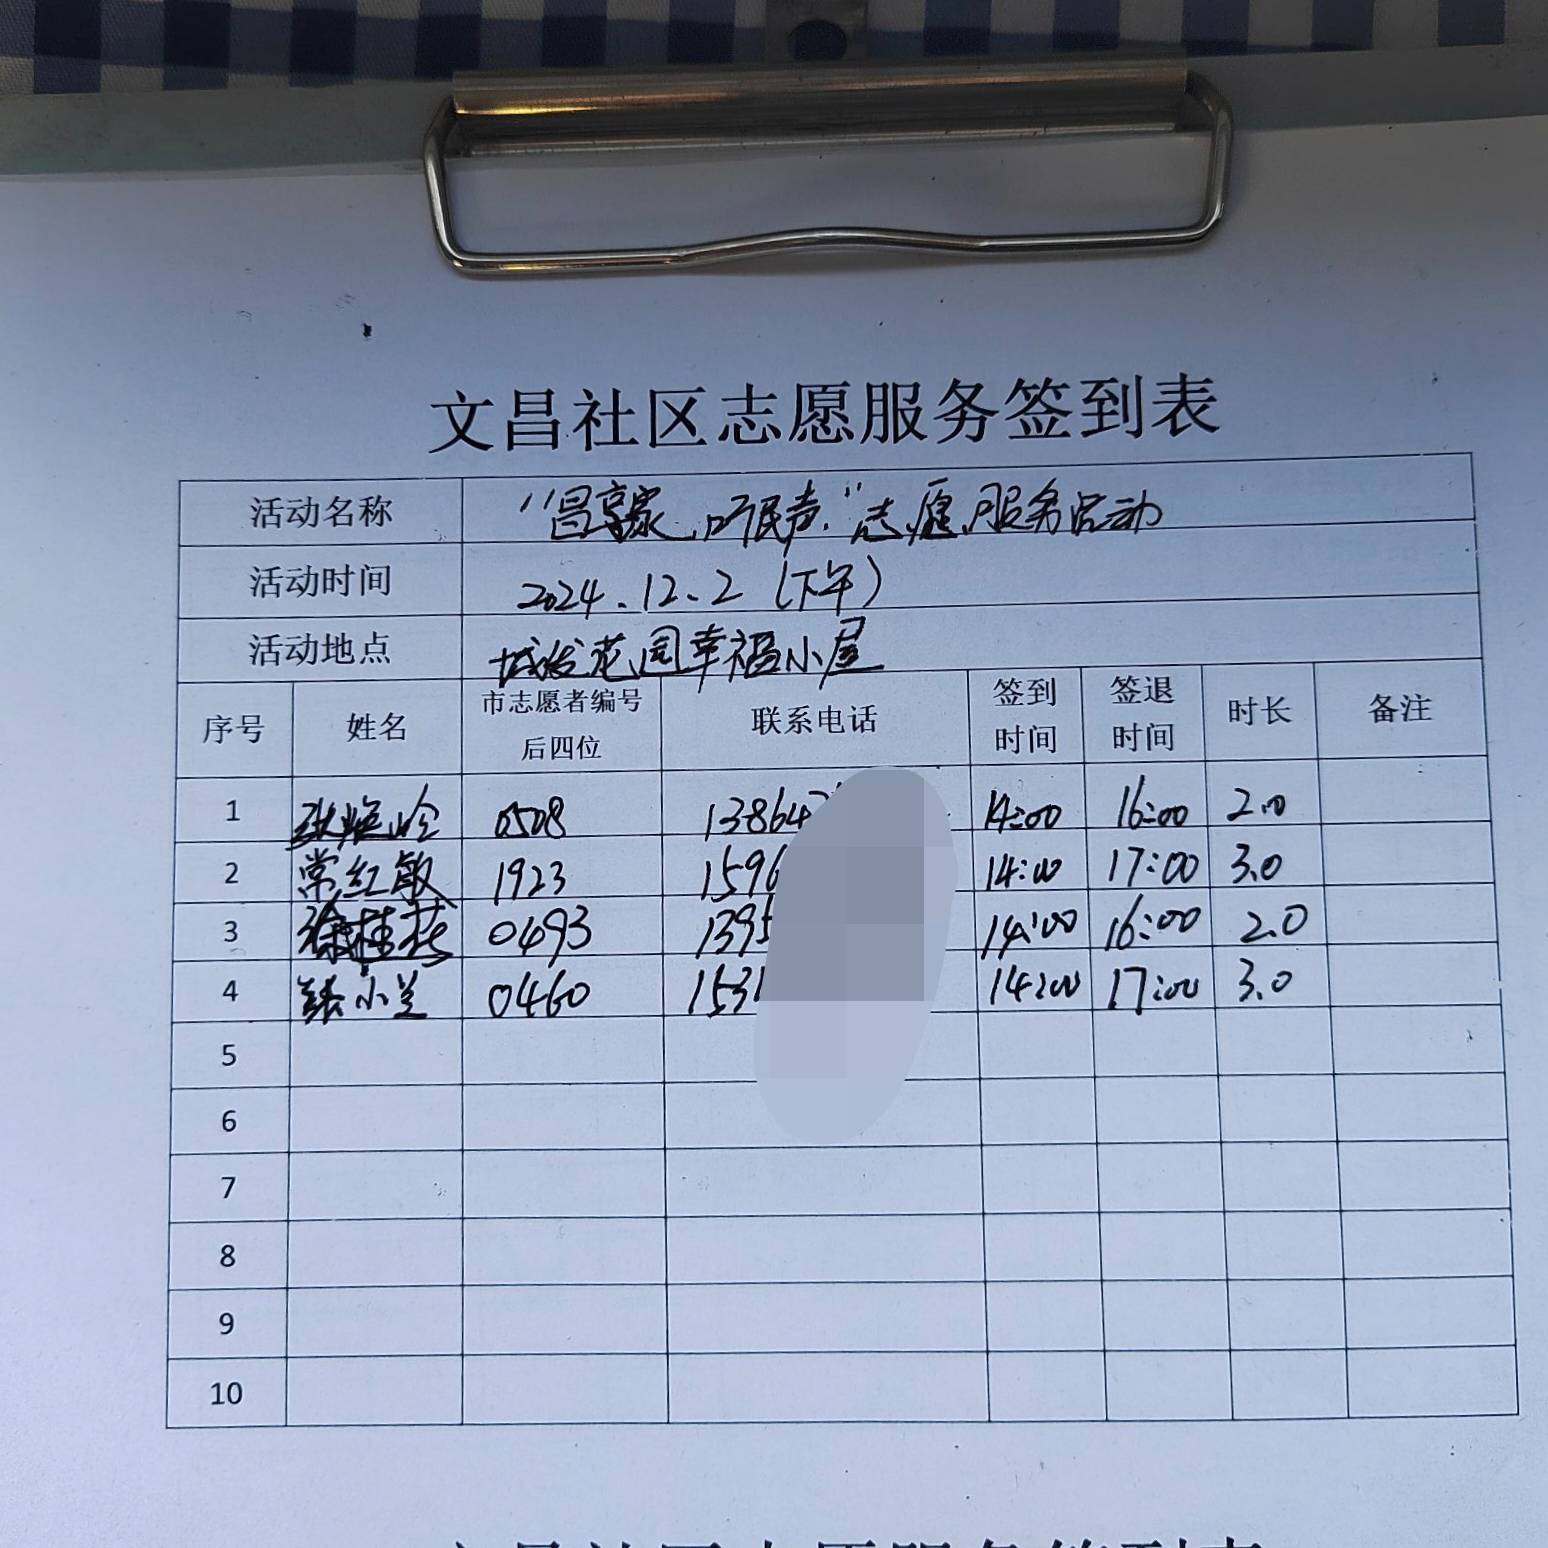 文昌社区志愿服务签到表
活动名称 "昌享家，听民声"志愿服务活动
活动时间 2024.12.2（下午）
活动地点 城发花园幸福小屋
序号 姓名 市志愿者编号后四位 联系电话 签到时间 签退时间 时长 备注
1 0508 13864 14:00 16:00 2.0
2 常红敏 1923 1596 14:00 17:00 3.0
3 徐桂花 0493 1395 14:00 16:00 2.0
4 张小兰 0460 1531 14:00 17:00 3.0
5
6
7
8
9
10
文昌社区志愿服务签到表